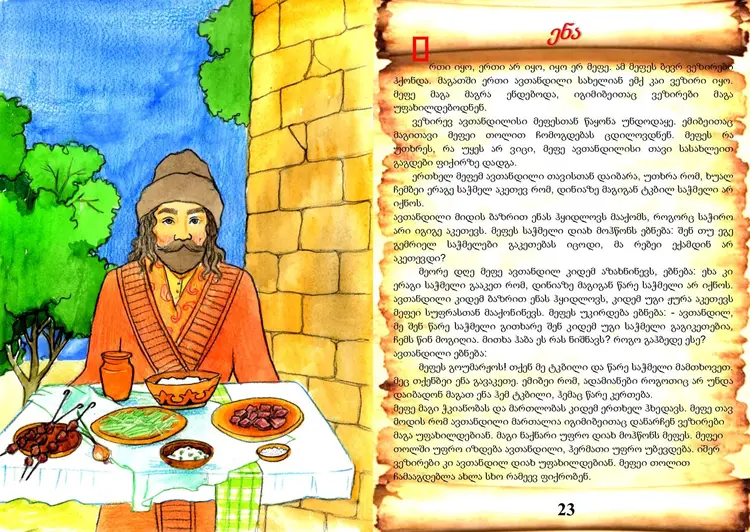 ენა
რთი იყო, ერთი არ იყო, იყო ერ მეფე. ამ მეფეს ბევრ ვეზირები
ჰქონდა. მაგათში ერთი ავთანდილი სახელიან ემქ კაი ვეზირი იყო.
მეფე მაგა მაგრა ენდებოდა, იგიმიბეითაც ვეზირები მაგა
უფახილდებოდნენ.
ვეზირევ ავთანდილისი მეფესთან წაყონა უნდოდაყე. ემიბეითაც
მაგითავი მეფეი თოლით ჩომოგდებას ცდილოვდნენ. მეფეს რა
უთხრეს, რა უყეს არ ვიცი, მეფე ავთანდილისი თავი სასახლეით
გაგდები ფიქირზე დადგა.
ერთხელ მეფემ ავთანდილი თავისთან დაიბარა, უთხრა რომ, ხუალ
ჩემბეი ერაგე საჭმელ აკეთევ რომ, დინიაზე მაგიგან ტკბილ საჭმელი არ
იქნოს.
ავთანდილი მიდის ბაზრით ენას ჰყიდლოვს მააქომს, როგორც საჭირო
არი იგიგე აკეთევს. მეფეს საჭმელი დიახ მოჰწონს ებნება: შენ თუ ეგე
გემრიელ საჭმელები გაკეთებას იცოდი, მა რებეი ექამდინ არ
აკეთევდი?
მეორე დღე მეფე ავთანდილ კიდემ აზახნინევს, ებნება: ეხა კი
ერაგი საჭმელი გააკეთ რომ, დინიაზე მაგიგან წარე საჭმელი არ იქნოს.
ავთანდილი კიდემ ბაზრით ენას ჰყიდლოვს, კიდემ უგი ჟურა აკეთევს
მეფეი სუფრასთან მააქონინევს. მეფეს უკირდება ებნება: - ავთანდილ,
მე შენ წარე საჭმელი გითხარე შენ კიდემ უგი საჭმელი გაგიკეთებია,
ჩემს წინ მოგიღია. მითხა ჰაბა ეს რას ნიშნავს? როგო გაჰბედე ესე?
ავთანდილი ებნება:
მეფეს გოუმარჯოს! თქენ მე ტკბილი და წარე საჭმელი მამთხოვეთ,
მეც თქენბეი ენა გავაკეთე. ემიბეი რომ, ადამიანები როგოთიც არ უნდა
დაიბადონ მაგათ ენა ჰემ ტკბილი, ჰემაც წარე კერთება.
მეფე მაგი ჭკიანობას და მართლობას კიდემ ერთხელ ჰხედავს. მეფე თავ
მოდის რომ ავთანდილი მართალია იგიმიბეითაც დანარჩენ ვეზირები
მაგა უფახილდებიან. მაგი ნაქნარი უფრო დიახ მოჰწონს მეფეს. მეფეი
თოლში უფრო იზდება ავთანდილი, ჰერმათი უფრო უბევდება. იმერ
ვეზირები კი ავთანდილ დიახ უფახილდებიან. მეფეი თოლით
ჩამააგდებლა ახლა სხო რამეევ ფიქრობენ.
23